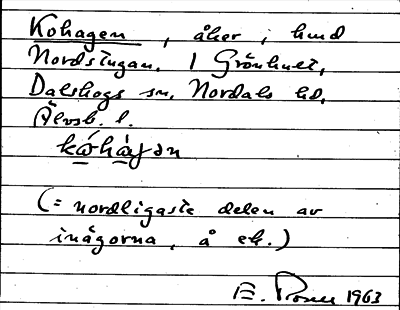 Kohagen, åker i hmd
Nordstugan, 1 Grönhult,
Dalskogs sn, Nordals hd,
Älvsb. l.
(= nordligaste delen av
inägorna, å ek.)
E. 1963